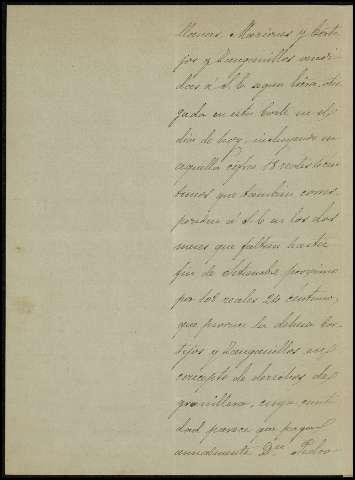 llanos, Marianas y Corti
jos y Zanguinillos vendi
dos á S. E. segun
gada en esta Corte en el
dia de hoy, incluyendo en
aquella cifra 18 reales
timos que tambien corres
ponden á S. E. en los dos
meses que faltan hasta
fin de Setiembre procsimo
por 108 reales 24 centimos,
que parece la dehesa Cor
tijos y Zanguinillos en
concepto de derechos de
granillera, cuya canti
dad parece que pagan
anualmente D.ⁿ Pedro